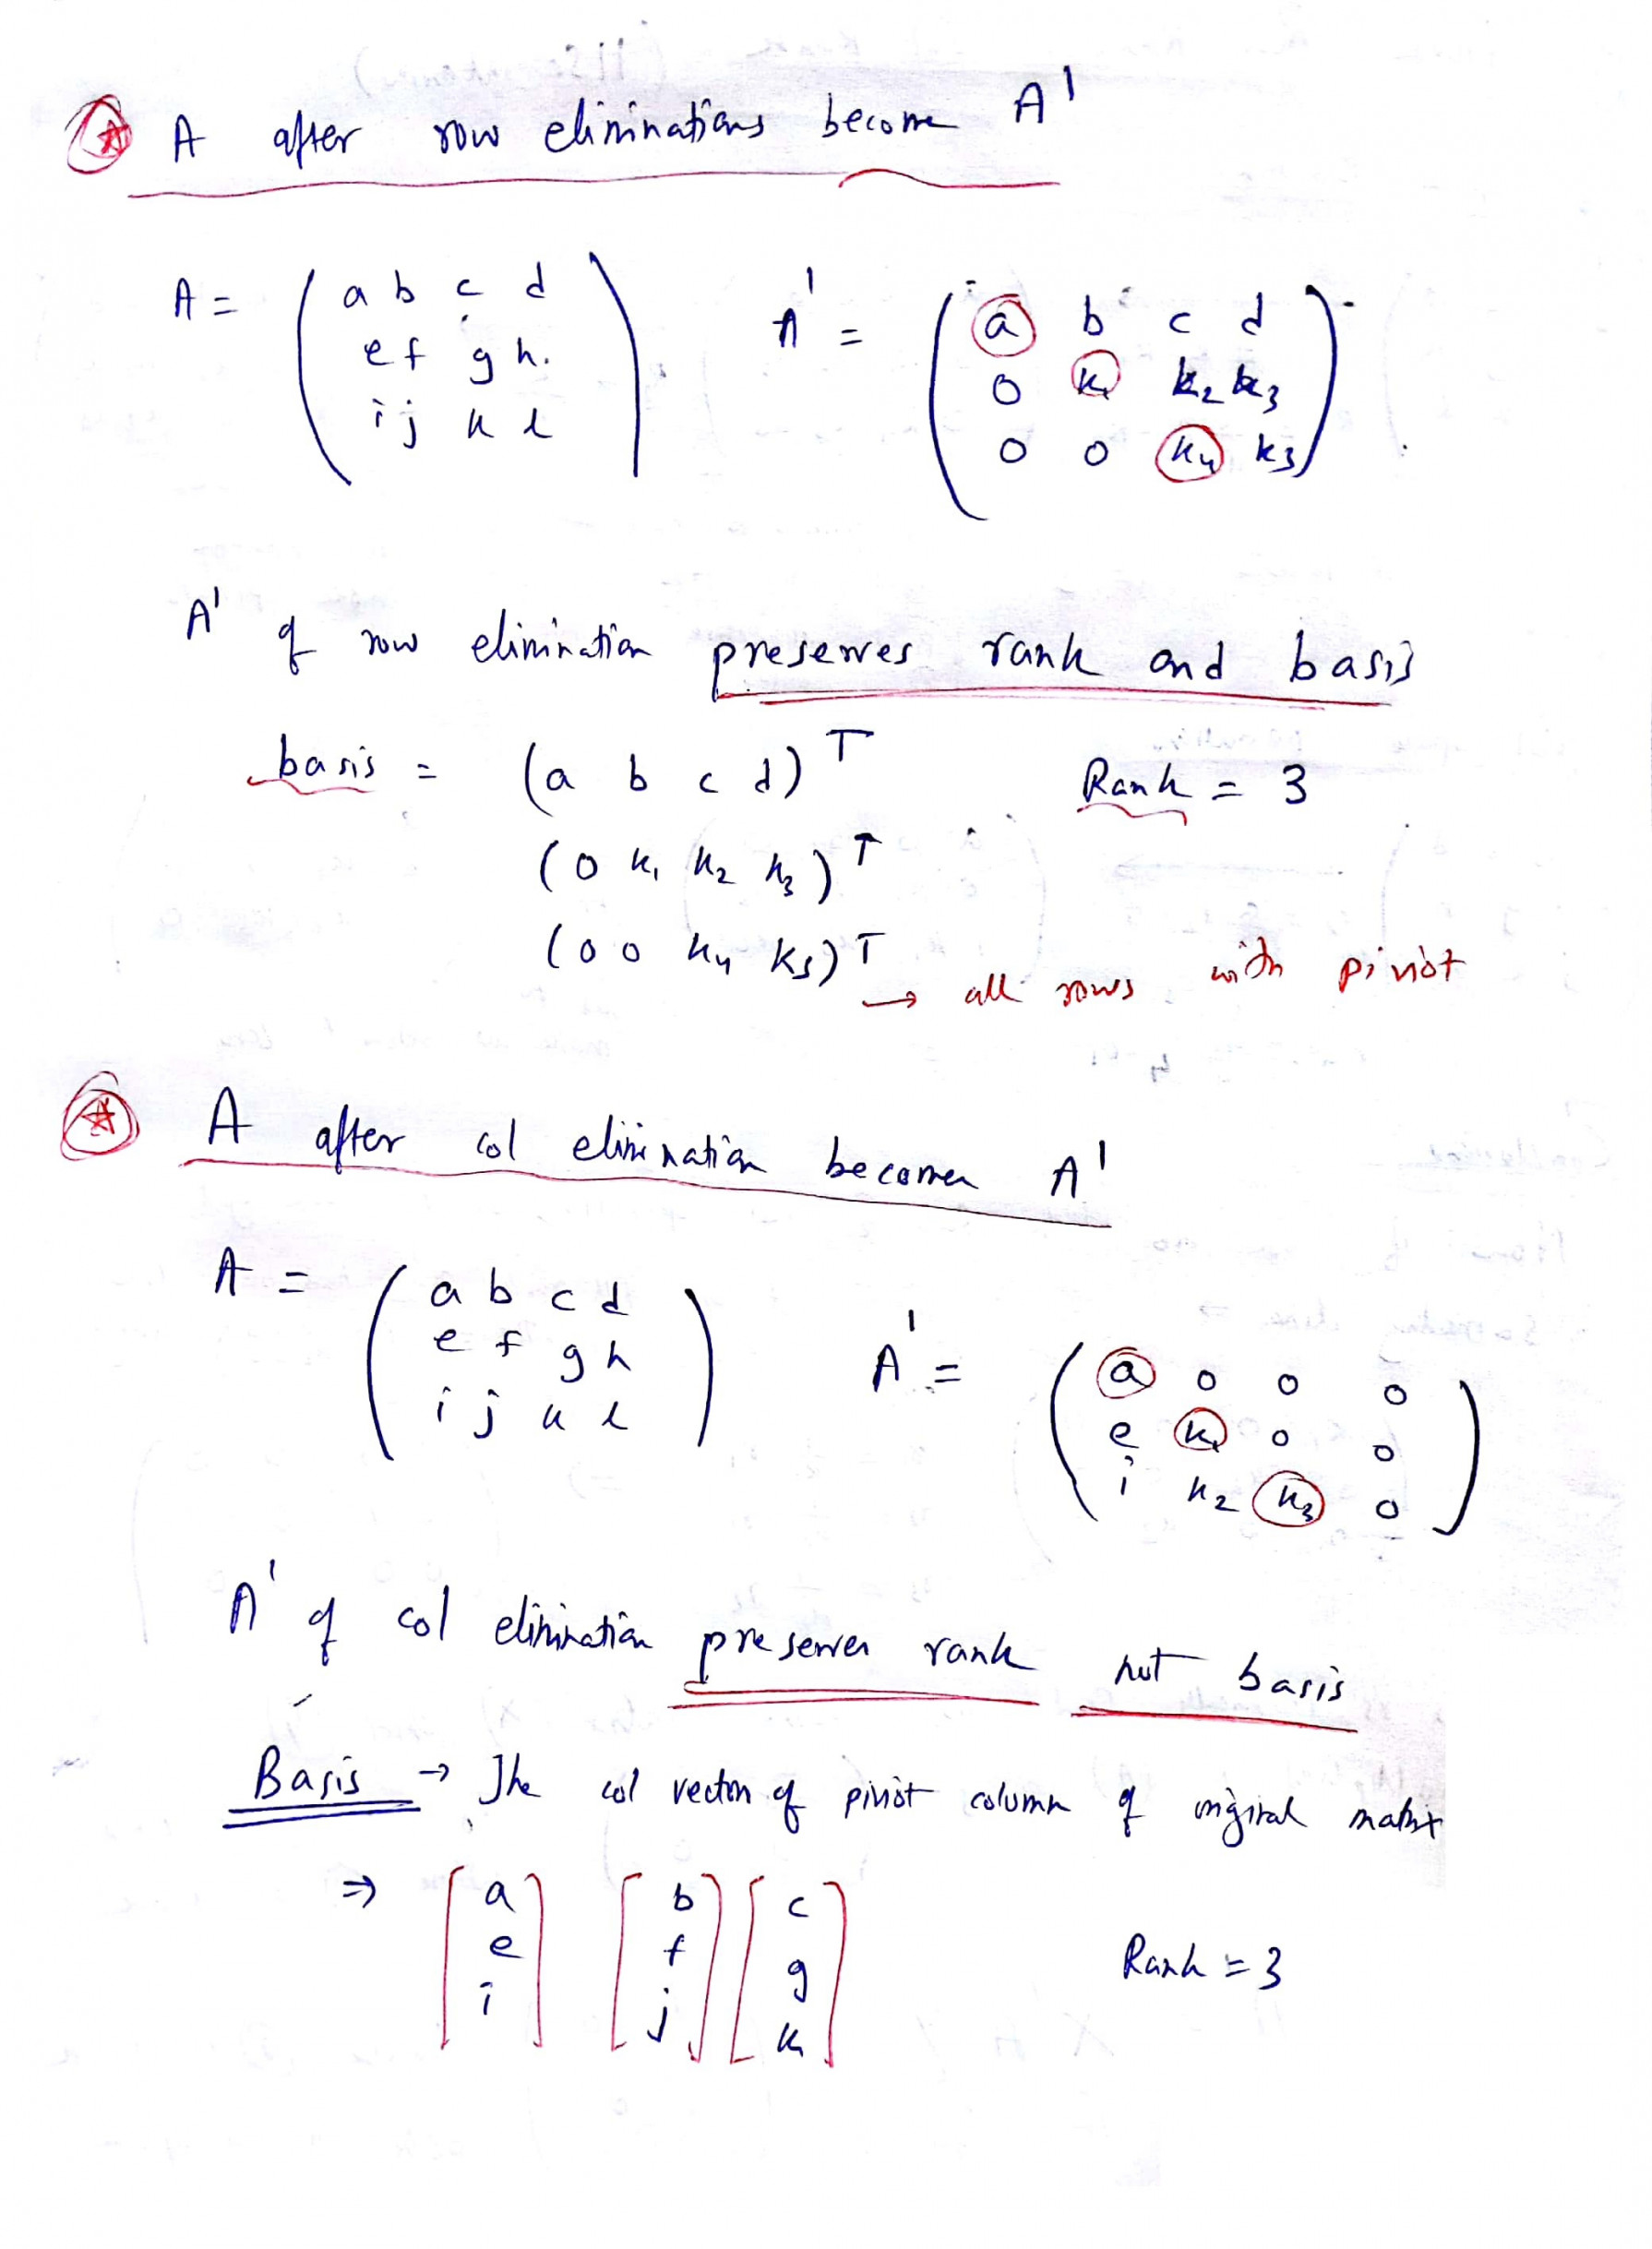 A after row eliminations become A'
A = ( a b c d
e f g h.
i j k l )
A' = ( a b c d
0 k₁ k₂ k₃
0 0 k₄ k₃ )
A' of row elimination preserves rank and basis
basis = (a b c d)ᵀ Rank = 3
(0 k₁ k₂ k₃)ᵀ
(0 0 k₄ k₅)ᵀ → all rows with pivot
A after col elimination becomes A'
A = ( a b c d
e f g h
i j k l )
A' = ( a 0 0 0
e k₁ 0 0
i k₂ k₃ 0 )
A' of col elimination preserves rank not basis
Basis → The col vector of pivot column of original matrix
⇒ [a e i] [b f j] [c g k] Rank = 3